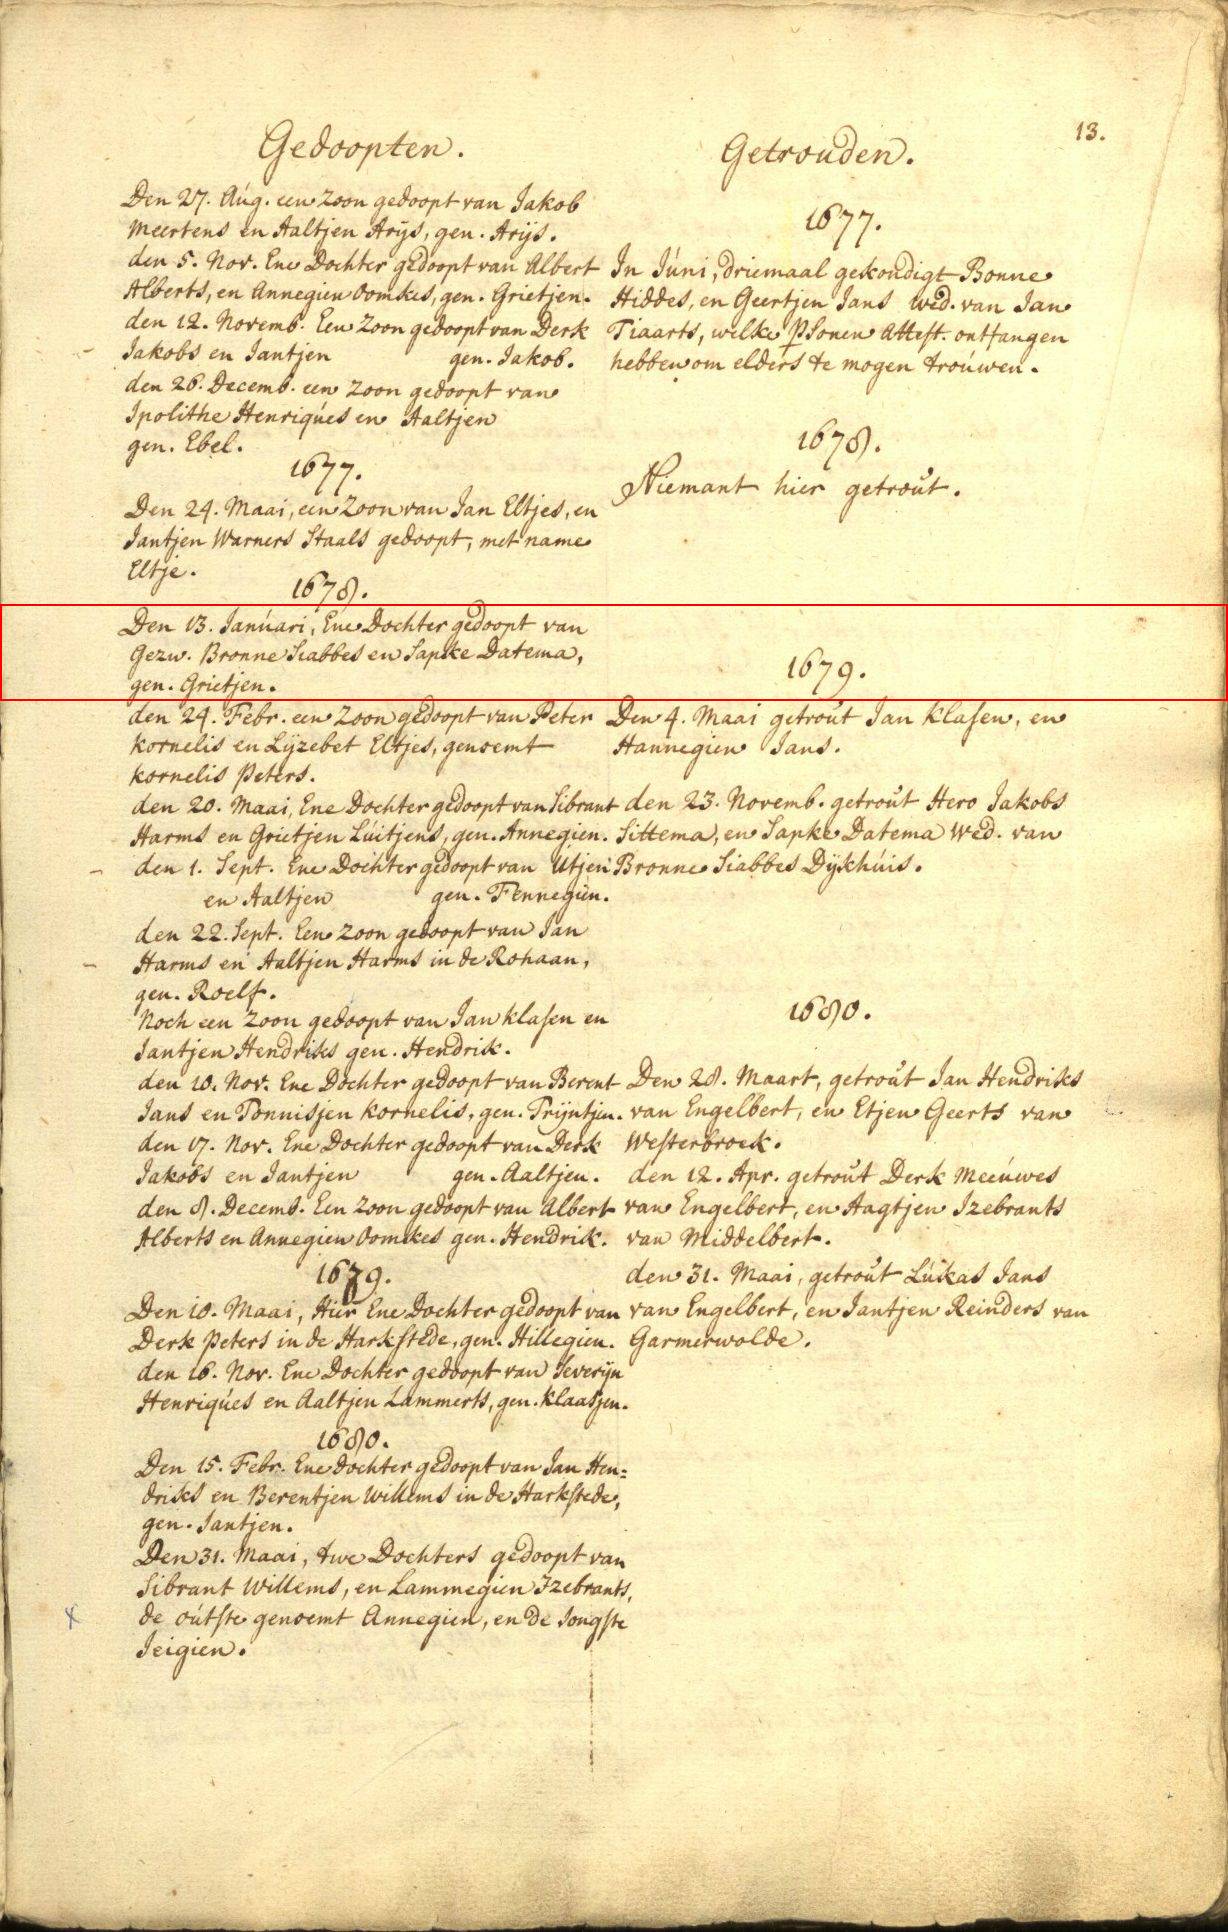 13.
Gedoopten.
Den 27. Aúg. een Zoon gedoopt van Jakob
Meertens en Aaltjen Arijs, gen. Arijs.
den 5. Nov. Ene Dochter gedoopt van Albert
Alberts, en Annegien Oomkes, gen. Grietjen.
den 12. Novemb. Een Zoon gedoopt van Derk
Jakobs en Jantjen gen. Jakob.
den 26. Decemb. een Zoon gedoopt van
Ipolithe Henriqúes en Aaltjen
gen. Ebel.
1677.
Den 24. Maai, een Zoon van Jan Eltjes, en
Jantjen Warners Staals gedoopt, met name
Eltje.
1678.
Den 13. Janúari, Ene Dochter gedoopt van
Gezw. Bronne Siabbes en Sapke Datema,
gen. Grietjen.
den 24. Febr. een Zoon gedoopt van Peter
kornelis en Lijzebet Eltjes, genoemt
kornelis Peters.
den 20. Maai, Ene Dochter gedoopt van Sibrant
Harms en Grietjen Lúitjens, gen. Annegien.
den 1. Sept. Ene Dochter gedoopt van Utjen
en Aaltjen gen. Fennegien.
den 22. Sept. Een Zoon gedoopt van Jan
Harms en Aaltjen Harms in de Rohaan,
gen. Roelf.
Noch een Zoon gedoopt van Jan klasen en
Jantjen Hendriks gen. Hendrik.
den 10. Nov. Ene Dochter gedoopt van Berent
Jans en Tonnisjen kornelis, gen. Trijntjen.
den 17. Nov. Ene Dochter gedoopt van Derk
Jakobs en Jantjen gen. Aaltjen.
den 8. Decemb. Een Zoon gedoopt van Albert
Alberts en Annegien Oomkes gen. Hendrik.
1679.
Den 10. Maai, Hier Ene Dochter gedoopt van
Derk Peters in de Harkstede, gen. Hillegien.
den 16. Nov. Ene Dochter gedoopt van Severijn
Henriqúes en Aaltjen Lammerts, gen. klaasjen.
1680.
Den 15. Febr. Ene Dochter gedoopt van Jan Hen=
driks en Berentjen Willems in de Harkstede,
gen. Jantjen.
Den 31. Maai, twe Dochters gedoopt van
Sibrant Willems, en Lammegien Izebrants,
de oútste genoemt Annegien, en de Jongste
Jeigien.
Getrouden.
1677.
In Júni, driemaal gekondigt Bonne
Hiddes, en Geertjen Jans wed. van Jan
Tiaarts, welke Psonen Attest. ontfangen
hebben om elders te mogen troúwen.
1678.
Niemant hier getroút.
1679.
Den 4. Maai getroút Jan klasen, en
Hannegien Jans.
den 23. Novemb. getroút Hero Jakobs
Sittema, en Sapke Datema Wed. van
Bronne Siabbes Dijkhúis.
1680.
Den 28. Maart, getroút Jan Hendriks
van Engelbert, en Etjen Geerts van
Westerbroek.
den 12. Apr. getroút Derk Meeúwes
van Engelbert, en Aagtjen Izebrants
van Middelbert.
den 31. Maai, getroút Lúkas Jans
van Engelbert, en Jantjen Reinders van
Garmerwolde.